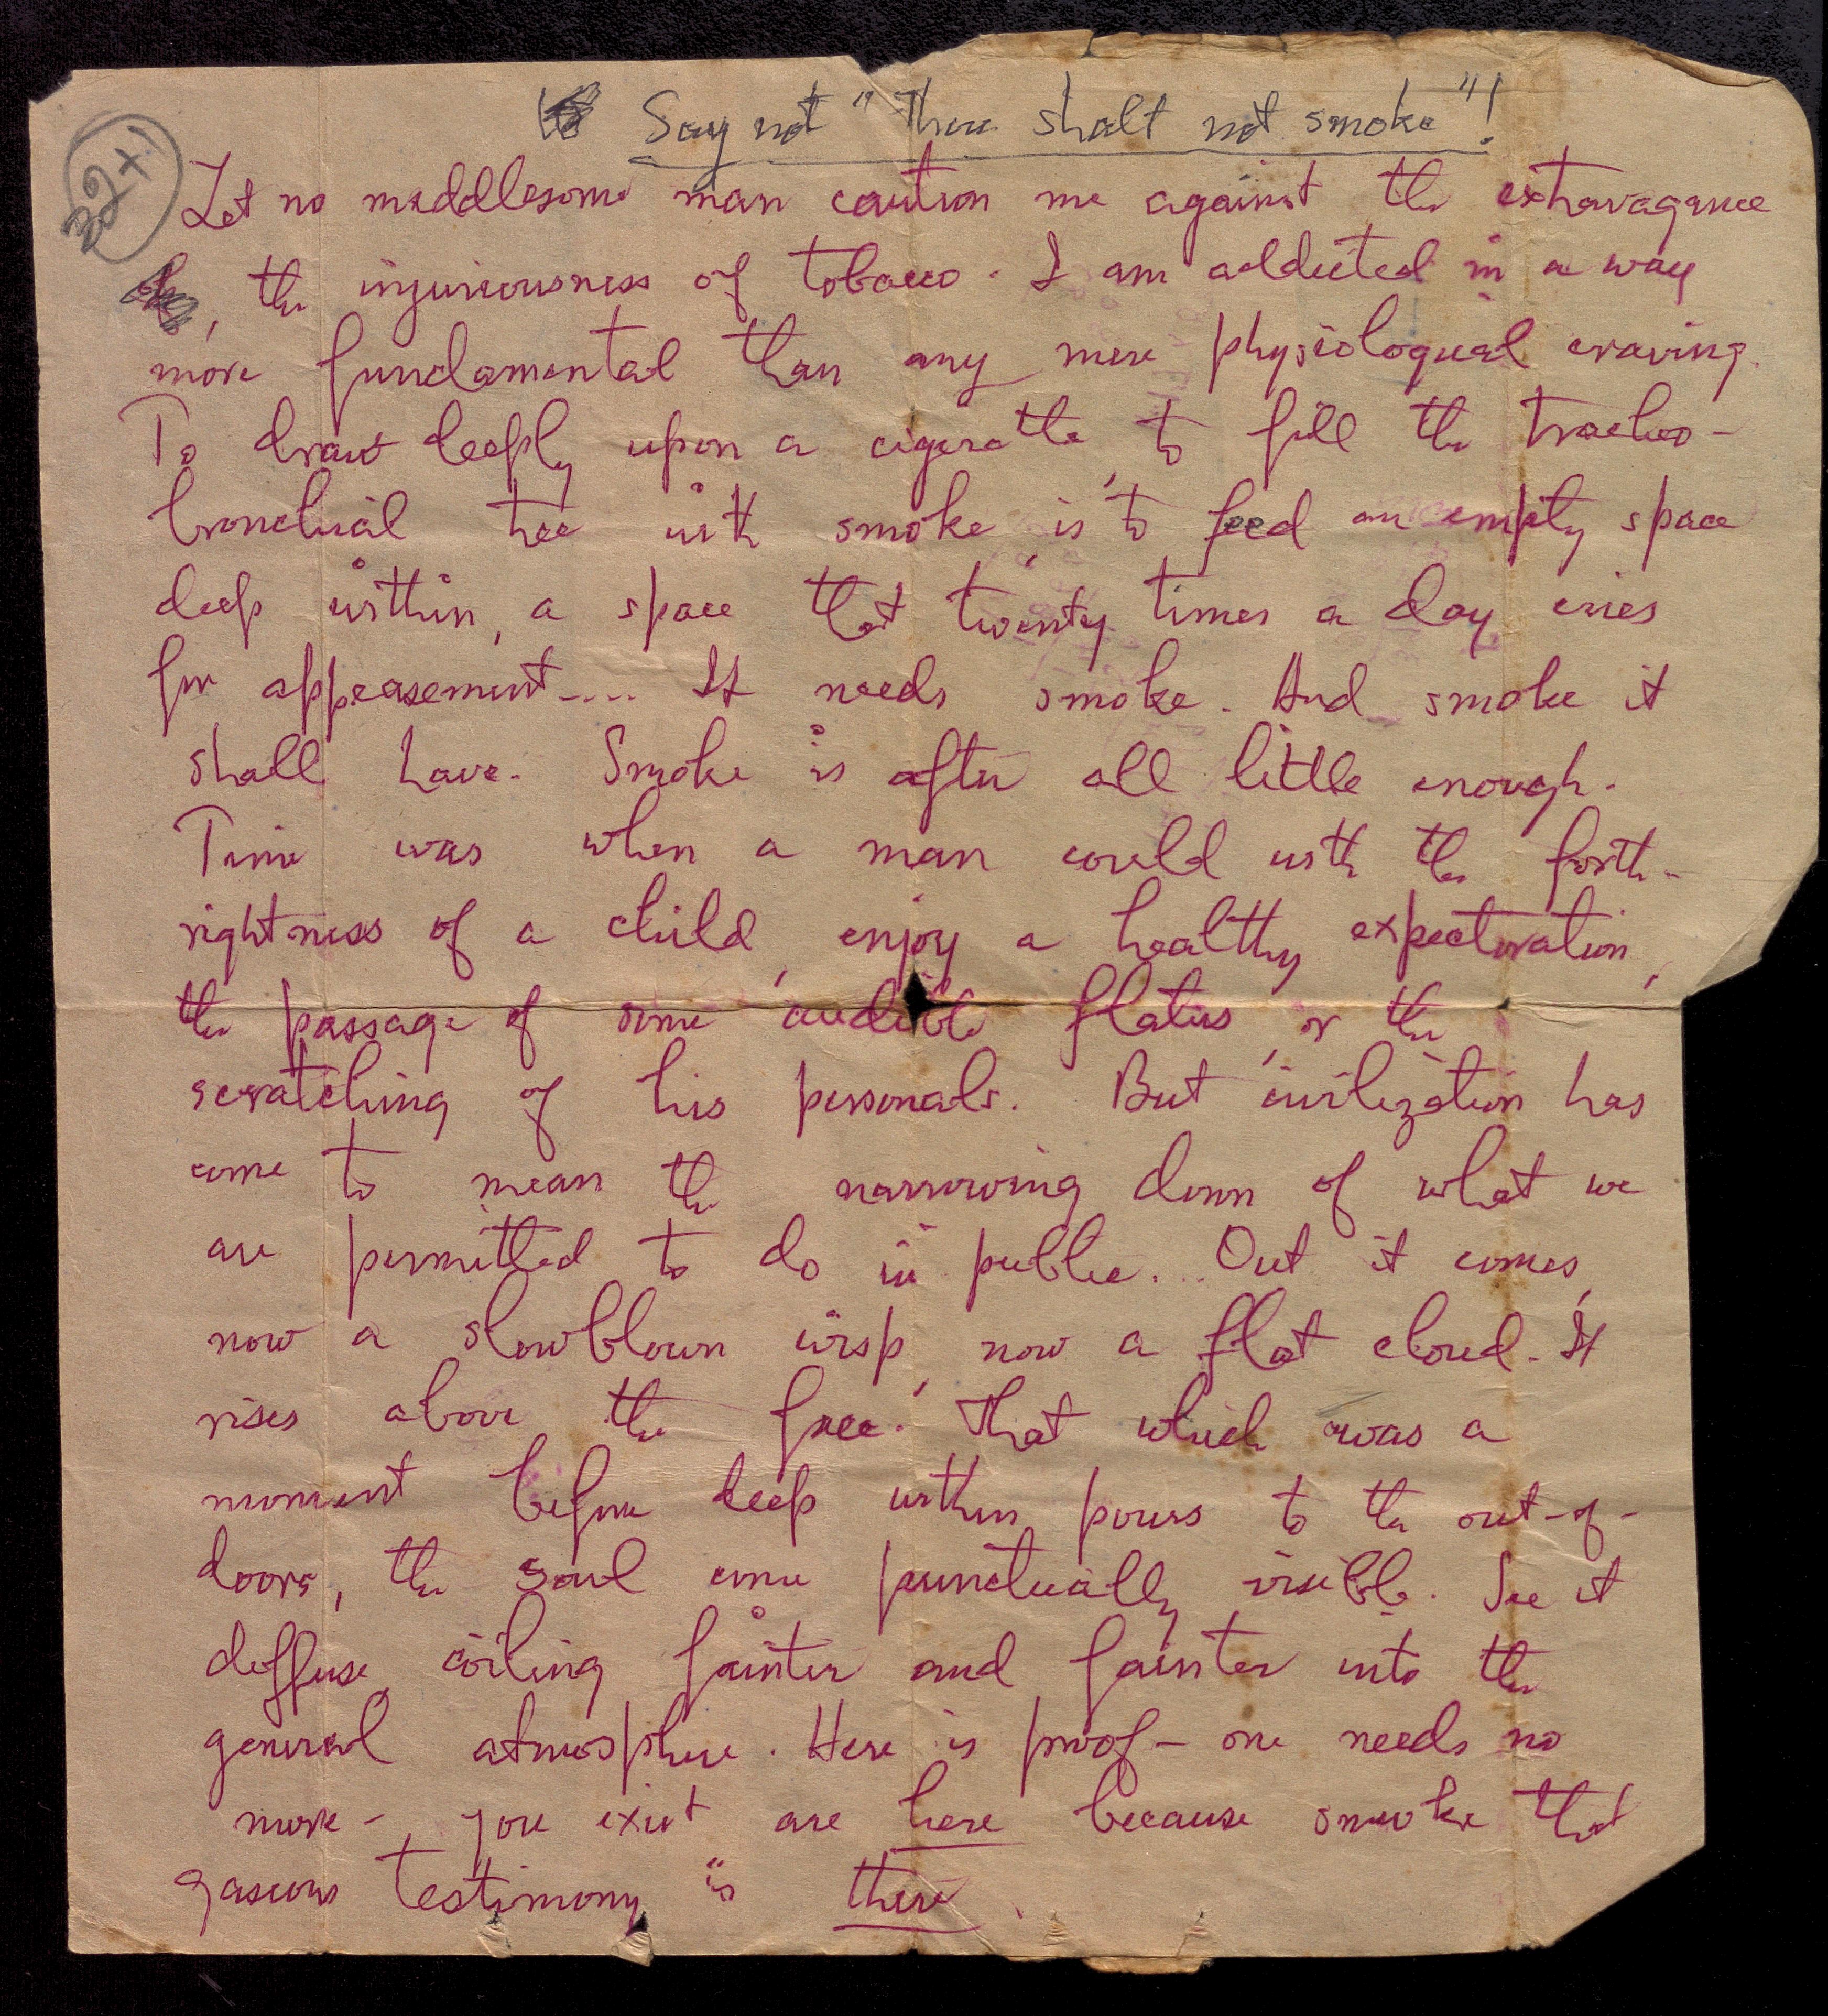 Say not "Thou shalt not smoke"!
322+1
Let no meddlesome man caution me against the extravagance
, the injuriousness of tobacco. I am addicted in a way
more fundamental than any mere physiological craving.
To draw deeply upon a cigarette, to fill the tracheo-
bronchial tree with smoke, is to feed an empty space
deep within, a space that twenty times a day cries
for appeasement.... It needs smoke. And smoke it
shall have. Smoke is after all little enough.
Time was when a man could with the forth-
rightness of a child, enjoy a healthy expectoration,
the passage of some audible flatus, or the
scratching of his personals. But civilization has
come to mean the narrowing down of what we
are permitted to do in public... Out it comes,
now a slowblown wisp, now a flat cloud. It
rises above the face. That which was a
moment before deep within pours to the out-of-
doors, the soul come punctually visible. See it
diffuse, coiling fainter and fainter into the
general atmosphere. Here is proof - one needs no
more - you exist are here because smoke that
gaseous testimony is there.